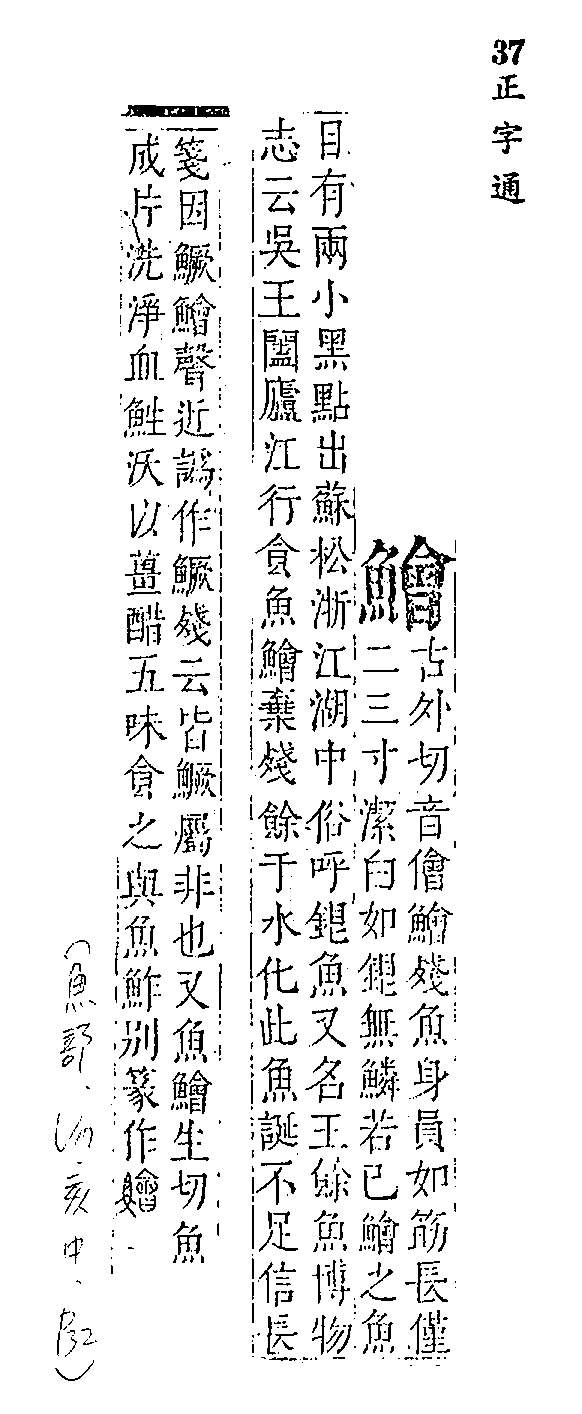 37正字通
鱠
古外切音儈鱠殘魚身員如筯長僅
二三寸潔白如銀無鱗若已鱠之魚
目有兩小黑點出蘇松浙江湖中俗呼銀魚又名王餘魚博物
志云吳王闔廬江行食魚鱠棄殘餘于水化此魚誕不足信長
箋因鱖鱠聲近譌作鱖殘云皆鱖屬非也又魚鱠生切魚
成片洗淨血鮏沃以薑醋五味食之與魚鮓別篆作
(魚部、亥中、P32)